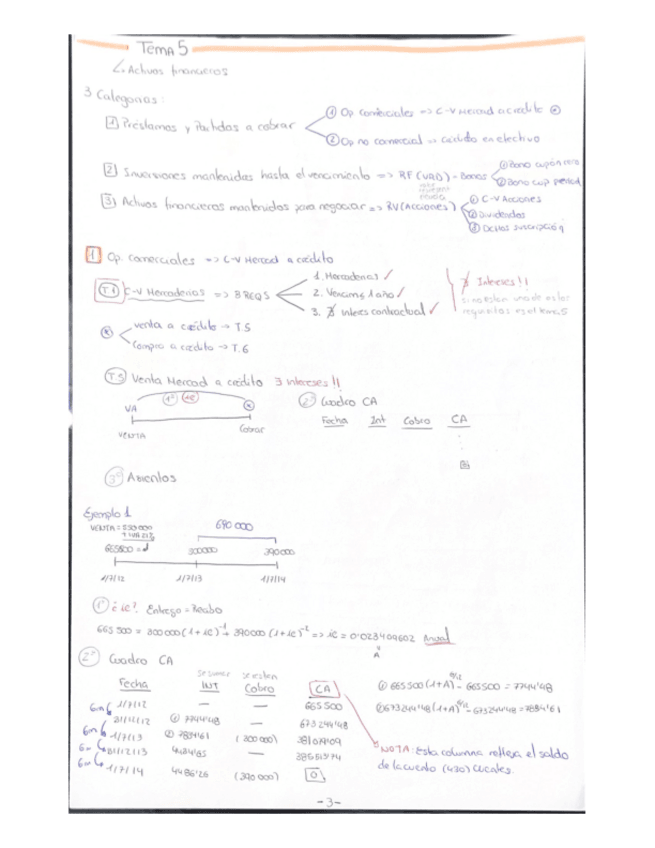 TEMA 5
Activos financieros
3 Categorias:
1 Préstamos y Partidas a cobrar
① Op comerciales => C-V Mercad a crédito *
② Op no comercial => crédito en efectivo
2 Inversiones mantenidas hasta el vencimiento => RF (VRD) - Bonos
① Bono cupón cero
② Bono cup period
3 Activos financieros mantenidos para negociar => RV (Acciones)
① C-V Acciones
② Dividendos
③ Dchos suscripción
1 Op. comerciales => C-V Mercad a crédito
C-V Mercaderías => 3 REQS
1. Mercaderías ✓
2. Vencim ≤ 1 año ✓
3. ∄ interes contractual ✓
∄ Intereses!!
* venta a crédito → T.5
compra a crédito → T.6
T.5 Venta Mercad a crédito ∃ intereses!!
1º ie
VA
VENTA
Cobrar
2º Cuadro CA
Fecha Int Cobro CA
3º Asientos
Ejemplo 1
VENTA = 550 000
+ IVA 21%
690 000
665500
300000
390000
1/7/12
1/7/13
1/7/14
1º ¿ie? Entrego = Recibo
665 500 = 300000 (1+ie)⁻¹ + 390000 (1+ie)⁻² => ie = 0'023409602 Anual
2º Cuadro CA
Fecha INT Cobro CA
1/7/12 — — 665 500
6m 31/12/12 ① 7744'48 — 673 244'48
6m 1/7/13 ② 7834'61 (300 000) 381 079'09
6m 31/12/13 4434'65 — 385 513'74
6m 1/7/14 4486'26 (390 000) 0
① 665 500 (1+A)^6/12 - 665500 = 7744'48
② 673 244'48 (1+A)^6/12 - 673244'48 = 7834'61
NOTA: Esta columna refleja el saldo
de la cuenta (430) Clientes.
-3-